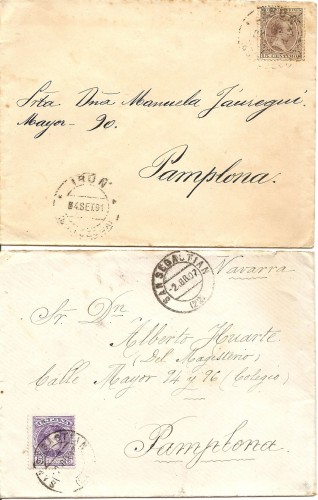 Srta Dña Manuela Jáuregui
Mayor - 90.
Pamplona.
IRÚN
4 SE 91
SAN SEBASTIAN
2.ABR.02
(22)
Navarra
Sr. Dn
Alberto Huarte
(Del Magisterio)
Calle Mayor 94 y 96 (Colegio)
Pamplona.